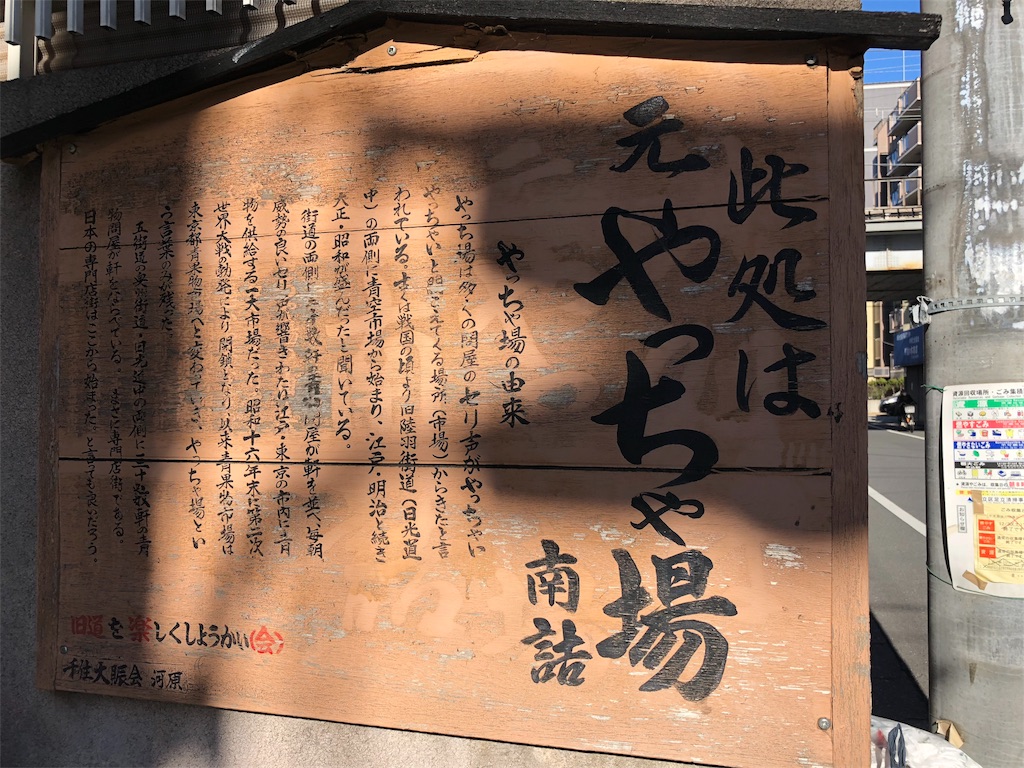 此処は
元やっちゃ場
南詰
やっちゃ場の由来
やっちゃ場は多くの問屋のセリ声がやっちゃい
やっちゃいと聞こえてくる場所(市場)からきたと言
われている。古くは戦国の頃より旧陸羽街道(日光道
中)の両側に青空市場から始まり、江戸・明治と続き
大正・昭和が盛んだったと聞いている。
街道の両側に三十数軒の青物問屋が軒を並べ、毎朝
威勢の良いセリ声が響きわたり江戸・東京の市内に青
物を供給する一大市場だった。昭和十六年末に第二次
世界大戦の勃発により閉鎖となり以来青果物市場は
東京都青果物市場へと変わっていき、やっちゃ場とい
う言葉のみが残った。
五街道の来の街道、日光道中の両側に三十数軒の青
物問屋が軒をならべている。まさに専門店街である。
日本の専門店街はここから始まった、と言っても良いだろう。
旧道を楽しくしようかい(会)
千住大賑会 河原
資源回収場所・ごみ集積
燃やすごみ
燃やさないごみ